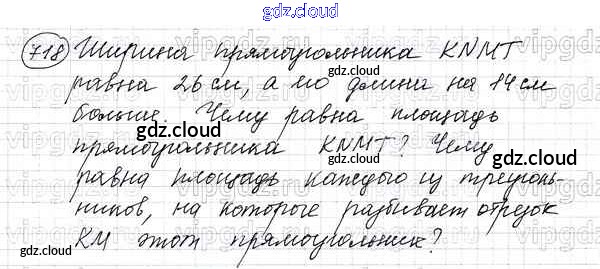 gdz.cloud
718 Ширина прямоугольника KNMT
равна 26 см, а его длина на 14 см
gdz.cloud
больше. Чему равна площадь
gdz.cloud
прямоугольника KNMT? Чему
gdz.cloud
равна площадь каждого из треуголь-
gdz.cloud
ников, на которые разбивает отрезок
gdz.cloud
KM этот прямоугольник?
gdz.cloud
gdz.cloud